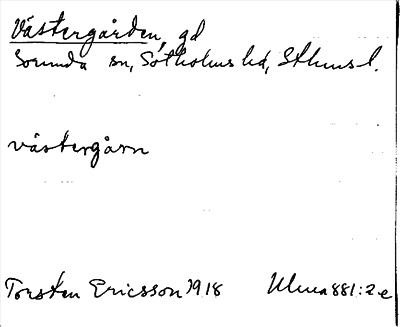 Västergården, gd
Sorunda sn, Sotholms hd, Sthms l.
västergårn
Torsten Ericsson 1918 Ulma 881:2e